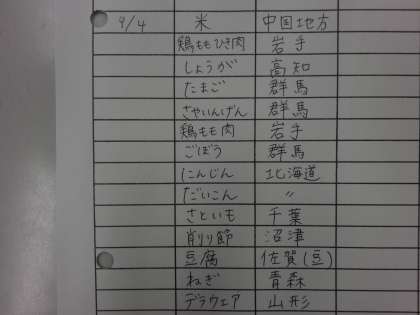 9/4 米 中国地方
鶏ももひき肉 岩手
しょうが 高知
たまご 群馬
さやいんげん 群馬
鶏もも肉 岩手
ごぼう 群馬
にんじん 北海道
だいこん 〃
さといも 千葉
削り節 沼津
豆腐 佐賀(豆)
ねぎ 青森
デラウェア 山形